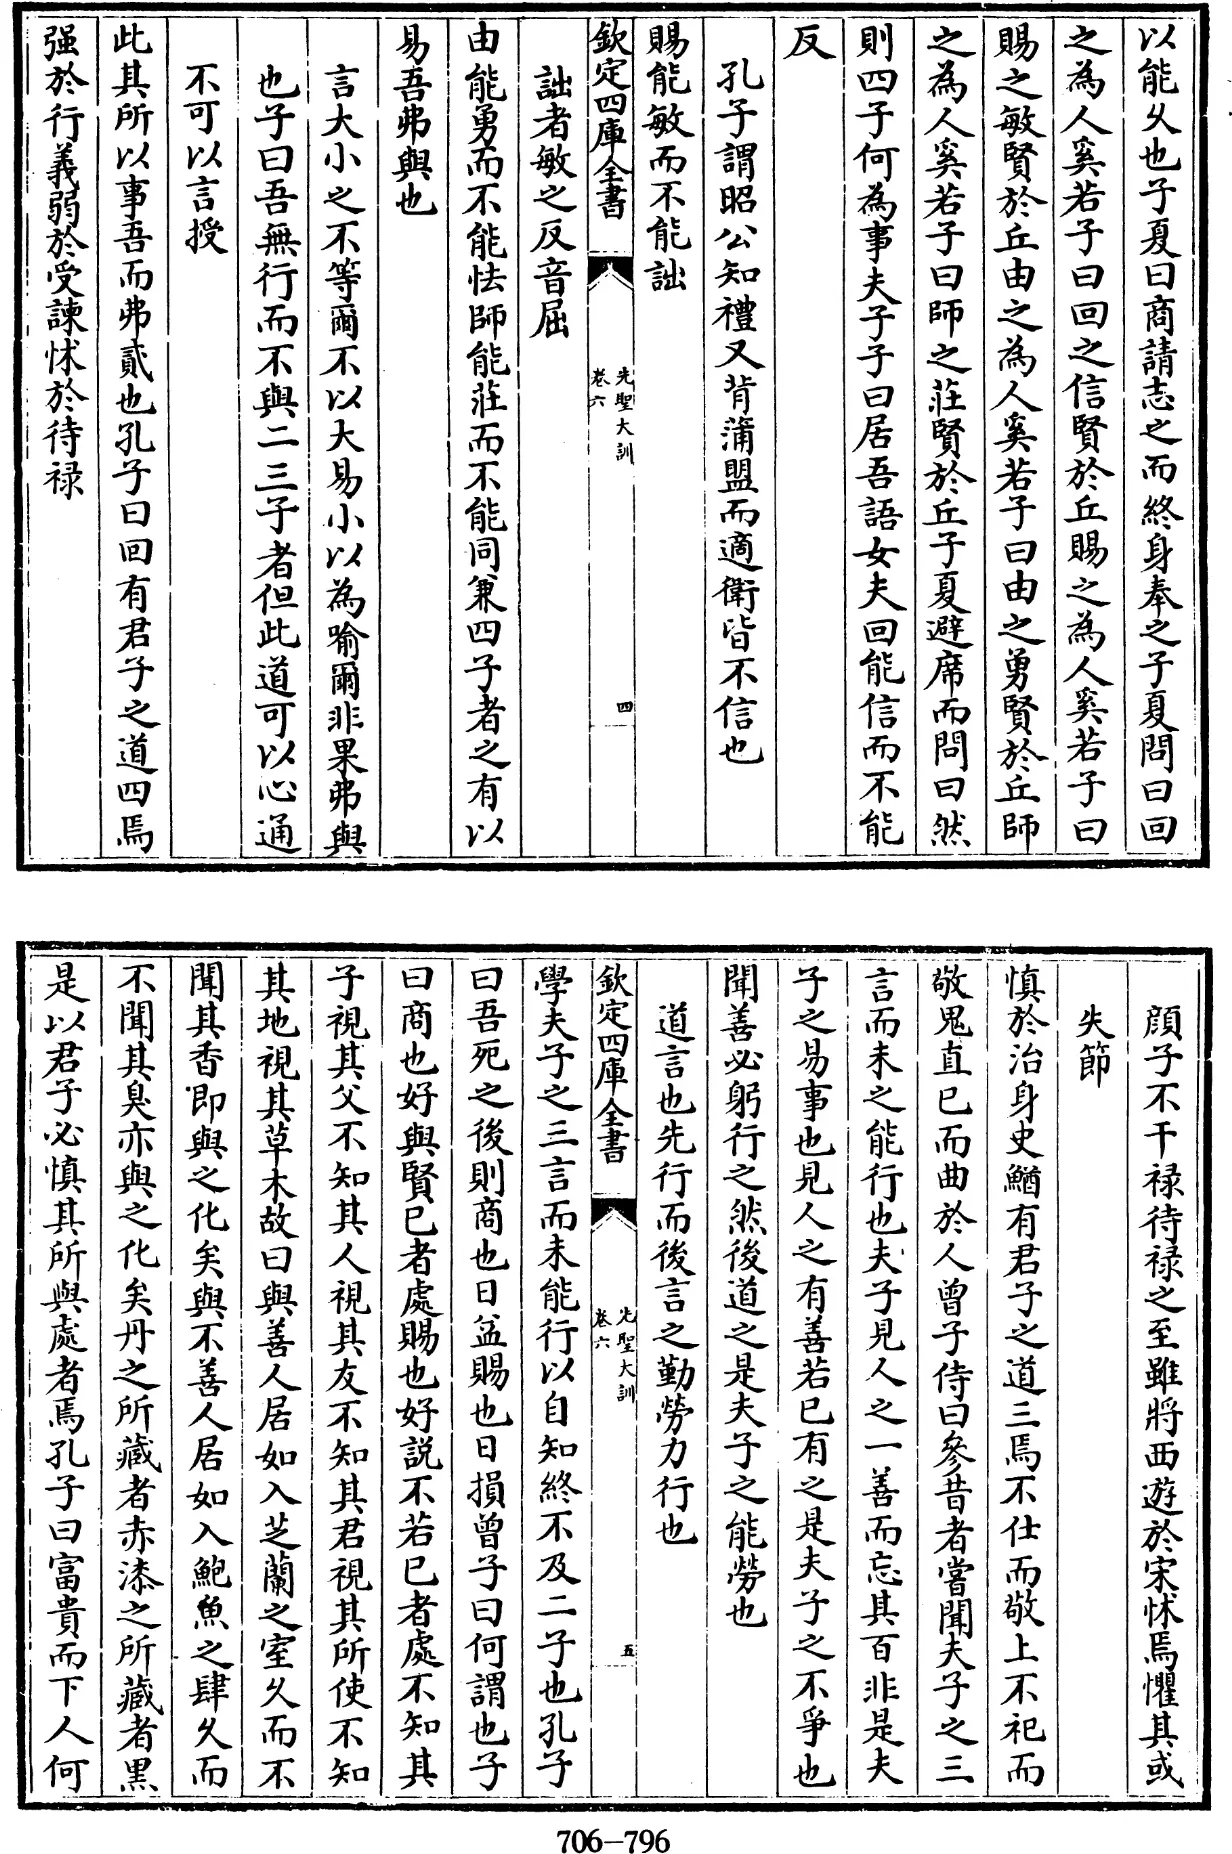 以能久也子夏曰商請志之而終身奉之子夏問曰回
之為人奚若子曰回之信賢於丘賜之為人奚若子曰
賜之敏賢於丘由之為人奚若子曰由之勇賢於丘師
之為人奚若子曰師之莊賢於丘子夏避席而問曰然
則四子何為事夫子子曰居吾語女夫回能信而不能
反
孔子謂昭公知禮又背蒲盟而適衛皆不信也
賜能敏而不能詘
欽定四庫全書
先聖大訓
卷六
四
詘者敏之反音屈
由能勇而不能怯師能莊而不能同兼四子者之有以
易吾弗與也
言大小之不等爾不以大易小以為喻爾非果弗與
也子曰吾無行而不與二三子者但此道可以心通
不可以言授
此其所以事吾而弗貳也孔子曰回有君子之道四焉
强於行義弱於受諫怵於待禄
顔子不干禄待禄之至雖將西遊於宋怵焉懼其或
失節
慎於治身史鰌有君子之道三焉不仕而敬上不祀而
敬鬼直已而曲於人曾子侍曰參昔者嘗聞夫子之三
言而未之能行也夫子見人之一善而忘其百非是夫
子之易事也見人之有善若已有之是夫子之不爭也
聞善必躬行之然後道之是夫子之能勞也
道言也先行而後言之勤勞力行也
欽定四庫全書
先聖大訓
卷六
五
學夫子之三言而未能行以自知終不及二子也孔子
曰吾死之後則商也日益賜也日損曾子曰何謂也子
曰商也好與賢已者處賜也好説不若已者處不知其
子視其父不知其人視其友不知其君視其所使不知
其地視其草木故曰與善人居如入芝蘭之室久而不
聞其香即與之化矣與不善人居如入鮑魚之肆久而
不聞其臭亦與之化矣丹之所藏者赤漆之所藏者黒
是以君子必慎其所與處者焉孔子曰富貴而下人何
706—796